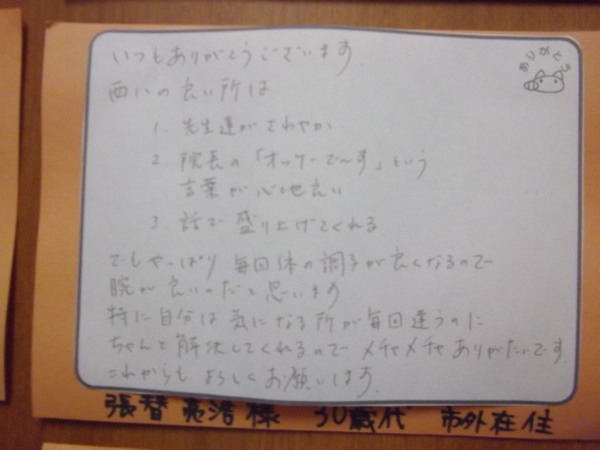 いつもありがとうございます。
ありがとう
西八の良い所は
1. 先生達がさわやか
2. 院長の「オッケーで〜す」という
言葉が心地えい
3. 話で盛り上げてくれる
でもやっぱり 毎回体の調子が良くなるので
腕が良いのだと思います
特に自分は気になる所が毎回違うのに
ちゃんと解決してくれるので メチャメチャありがたいです。
これからもよろしくお願いします。
張替 亮浩様 30歳代 市外在住